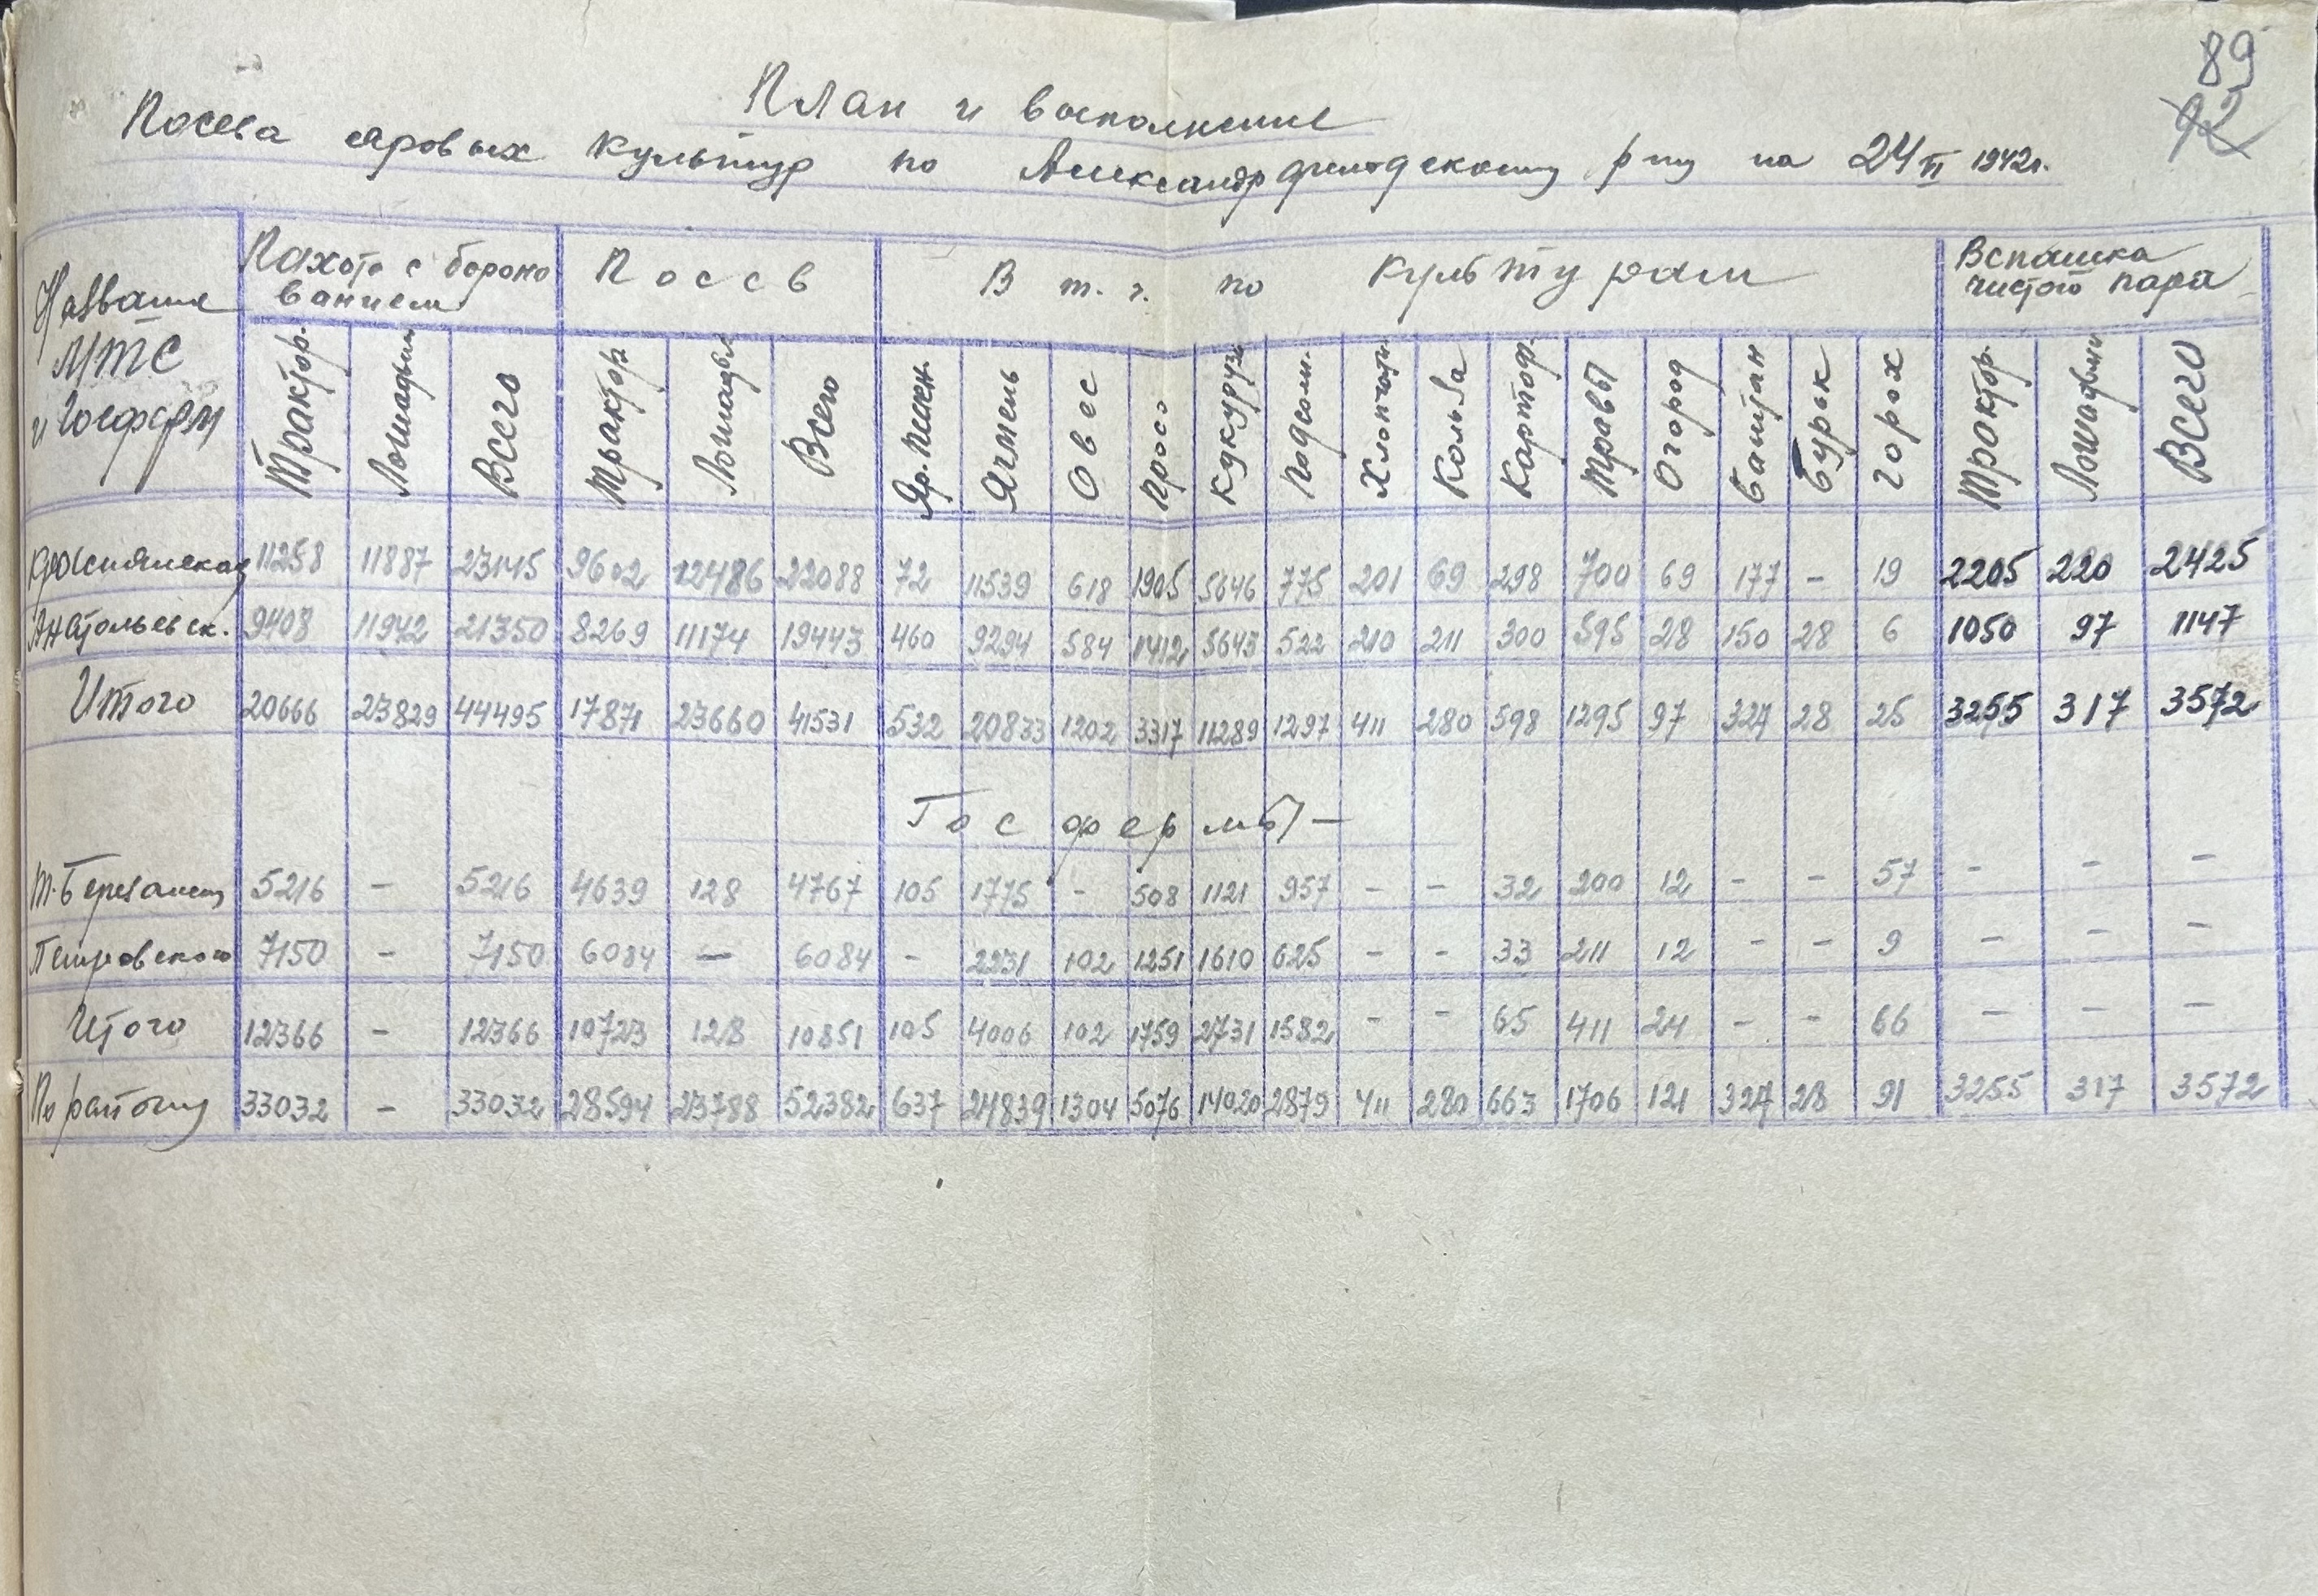 89
92
План и выполнение
Посева яровых культур по Александрфельдскому р-ну на 24 VI 1942г.
Название МТС и Госферм
Пахота с боронованием
Посев
В т. ч. по культурам
Вспашка чистого пара
Трактор. Лошадьми Всего Трактор. Лошадьм Всего Яр. пшен. Ячмень Овес Просо Кукуруза Подсолн. Хлопчатн. Картоф. Травы Огород Баштан Бурак Горох Трактор. Лошадьми Всего
11258 11887 23145 9602 12486 22088 72 11539 618 1905 5646 775 201 69 298 700 69 177 - 19 2205 220 2425
Анатольевск. 9408 11942 21350 8269 11174 19443 460 9294 584 1412 5643 522 210 211 300 595 28 150 28 6 1050 97 1147
Итого 20666 23829 44495 17871 23660 41531 532 20833 1202 3317 11289 1297 411 280 598 1295 97 327 28 25 3255 317 3572
Госфермы -
Т. Березанск 5216 - 5216 4639 128 4767 105 1775 - 508 1121 957 - - 32 200 12 - - 57 - - -
Петровского 7150 - 7150 6084 - 6084 - 2231 102 1251 1610 625 - - 33 211 12 - - 9 - - -
Итого 12366 - 12366 10723 128 10851 105 4006 102 1759 2731 1582 - - 65 411 24 - - 66 - - -
По району 33032 - 33032 28594 23788 52382 637 24839 1304 5076 14020 2879 411 280 663 1706 121 327 28 91 3255 317 3572